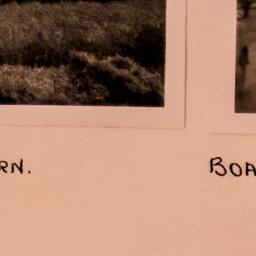 RN. BOA